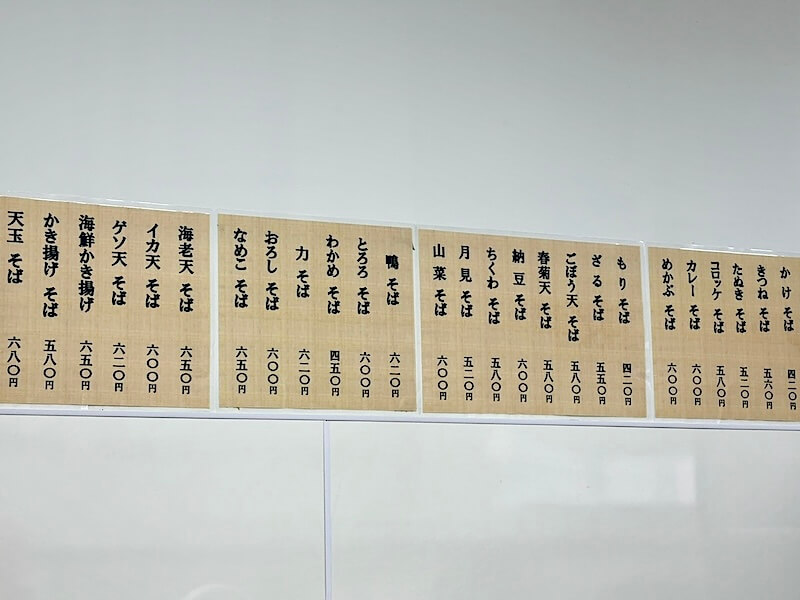 かけ そば 四二〇円
きつね そば 五六〇円
たぬき そば 五二〇円
コロッケ そば 五八〇円
カレー そば 六〇〇円
めかぶ そば 六〇〇円
もり そば 四二〇円
ざる そば 五五〇円
ごぼう天 そば 五八〇円
春菊天 そば 五八〇円
納豆 そば 六〇〇円
ちくわ そば 五八〇円
月見 そば 五二〇円
山菜 そば 六〇〇円
鴨 そば 六二〇円
とろろ そば 六〇〇円
わかめ そば 四五〇円
力 そば 六二〇円
おろし そば 六〇〇円
なめこ そば 六五〇円
海老天 そば 六五〇円
イカ天 そば 六〇〇円
ゲソ天 そば 六二〇円
海鮮かき揚げ 六五〇円
かき揚げ そば 五八〇円
天玉 そば 六八〇円